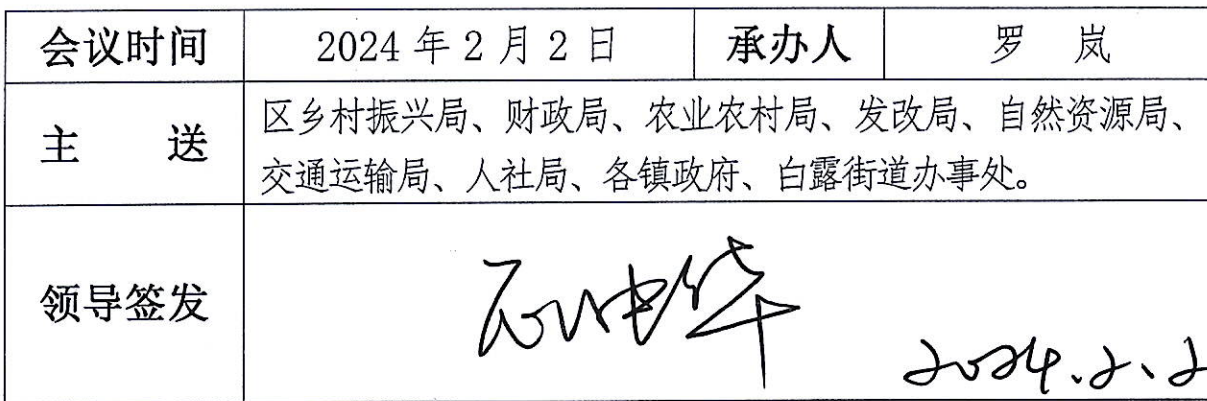 会议时间 2024年2月2日 承办人 罗 岚
主 送 区乡村振兴局、财政局、农业农村局、发改局、自然资源局、
交通运输局、人社局、各镇政府、白露街道办事处。
领导签发
2024.2.2